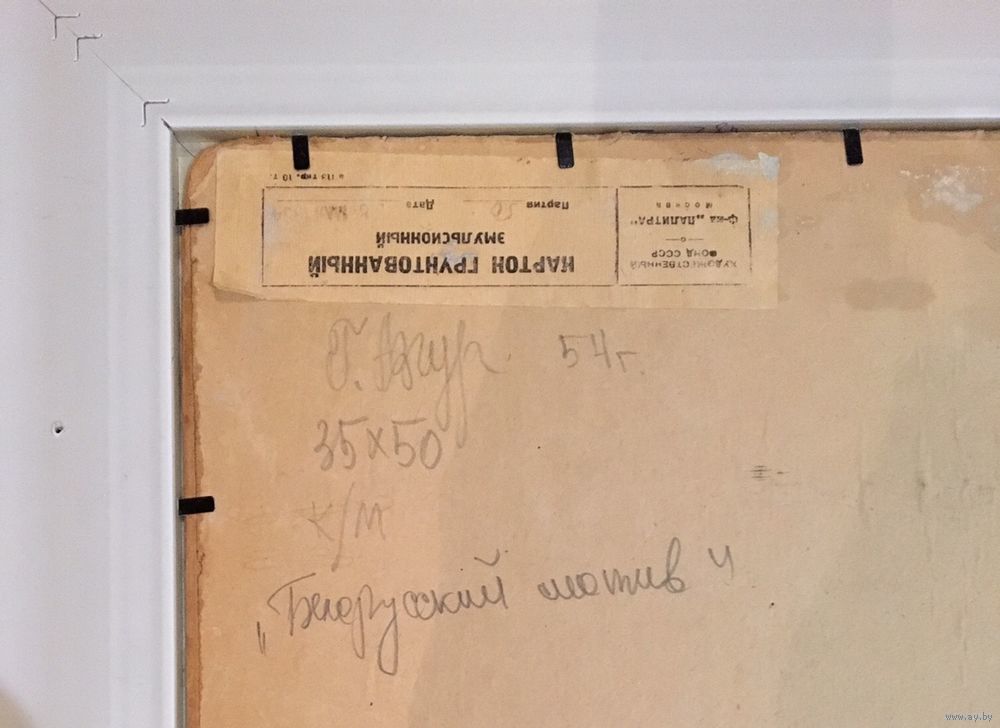 ХУДОЖЕСТВЕННЫЙ
ФОНД СССР
Ф-ка „ПАЛИТРА"
Москва
КАРТОН ГРУНТОВАННЫЙ
ЭМУЛЬСИОННЫЙ
Партия 50 Дата
тир. 10 т.
54 г.
35х50
к/м
„Белорусский мотив"
www.ay.by